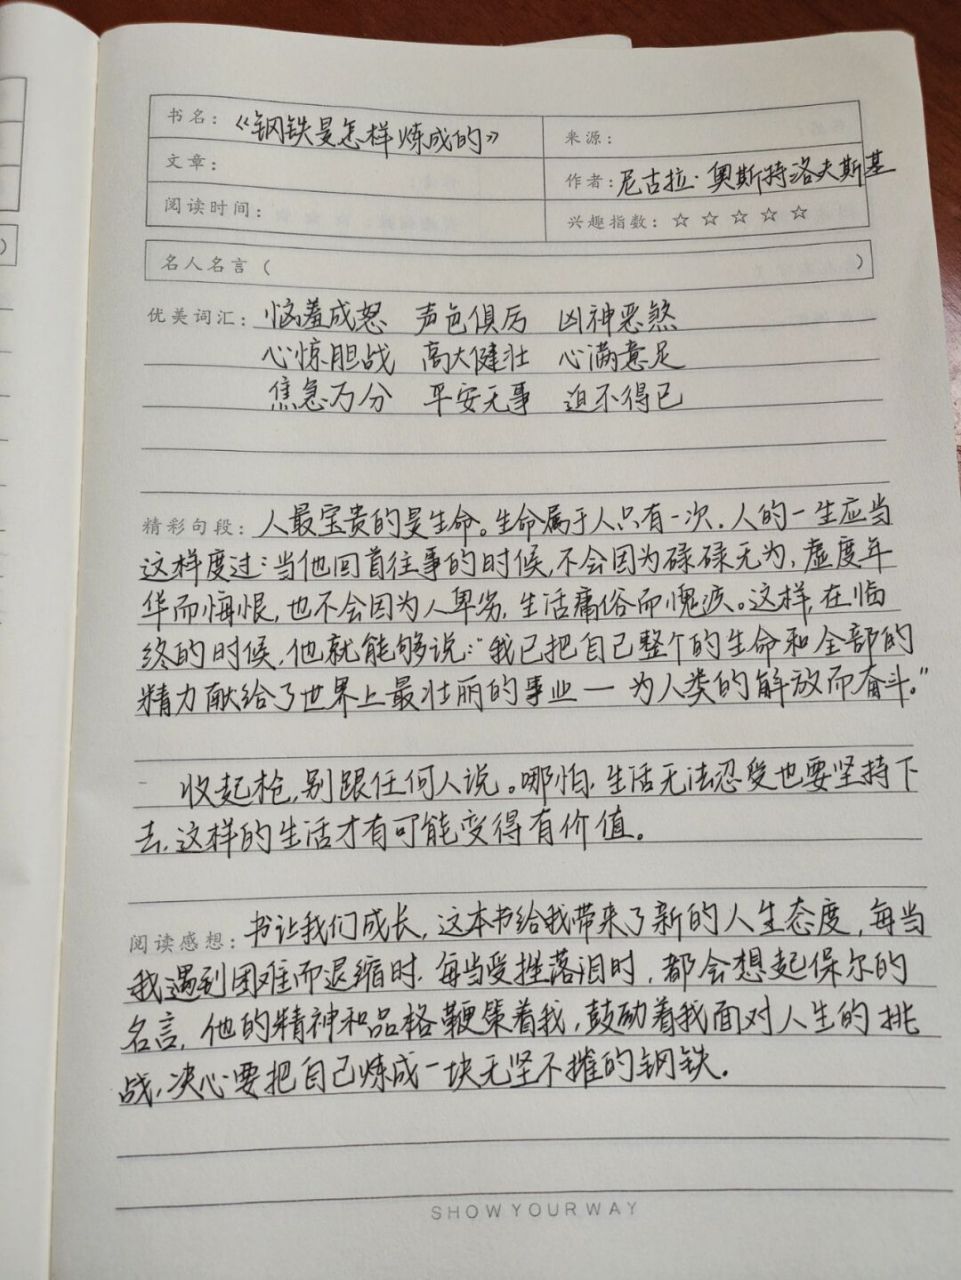 书名：《钢铁是怎样炼成的》 来源：
文章： 作者：尼古拉·奥斯特洛夫斯基
阅读时间： 兴趣指数：☆ ☆ ☆ ☆ ☆
名人名言（ ）
优美词汇：恼羞成怒 声色俱厉 凶神恶煞
心惊胆战 高大健壮 心满意足
焦急万分 平安无事 迫不得已
精彩句段：人最宝贵的是生命。生命属于人只有一次．人的一生应当
这样度过：当他回首往事的时候，不会因为碌碌无为，虚度年
华而悔恨，也不会因为人卑劣，生活庸俗而愧疚。这样，在临
终的时候，他就能够说：“我已把自己整个的生命和全部的
精力献给了世界上最壮丽的事业一为人类的解放而奋斗。”
收起枪，别跟任何人说。哪怕，生活无法忍受也要坚持下
去，这样的生活才有可能变得有价值。
阅读感想：书让我们成长，这本书给我带来了新的人生态度，每当
我遇到困难而退缩时，每当受挫落泪时，都会想起保尔的
名言，他的精神和品格鞭策着我，鼓励着我面对人生的挑
战，决心要把自己炼成一块无坚不摧的钢铁．
SHOW YOUR WAY